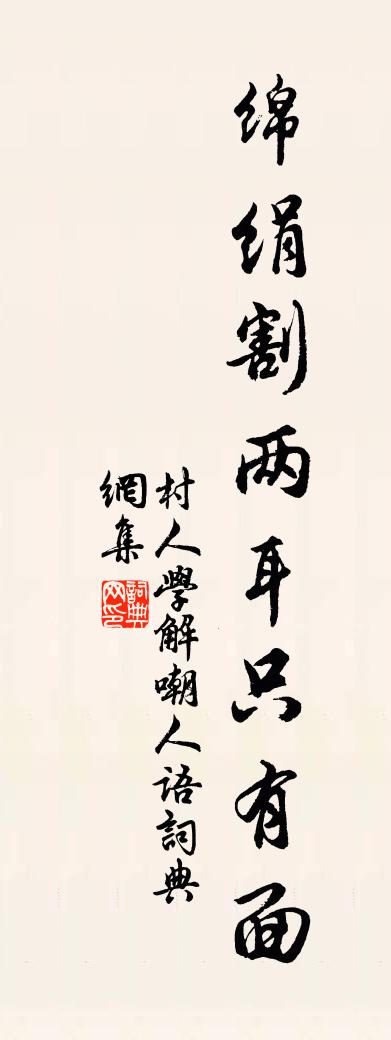 绵绢割两耳只有面
村人學解嘲人語詞典
網集
詞典
网印